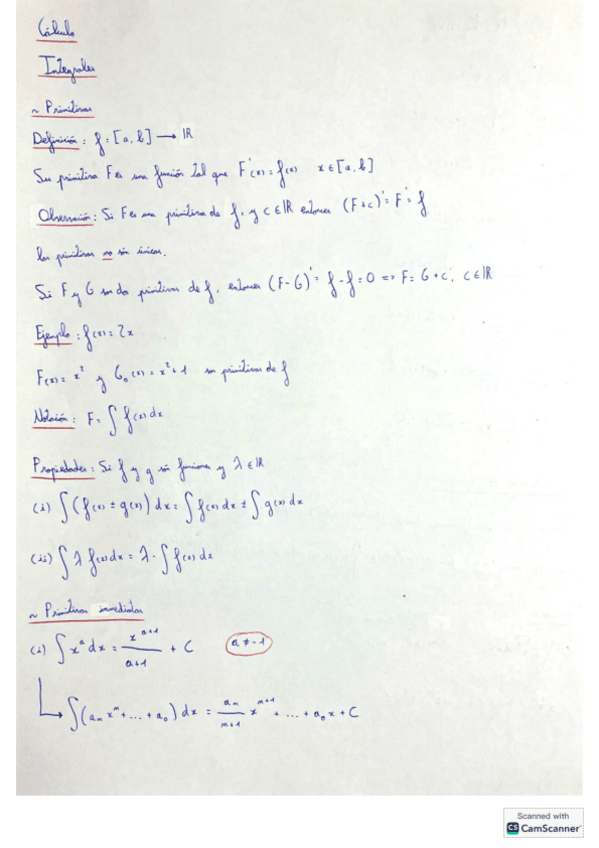 Cálculo
Integrales
~ Primitivas
Definición: f: [a, b] → IR
Su primitiva F es una función tal que F'(x) = f(x) x ∈ [a, b]
Observación: Si F es una primitiva de f, y c ∈ IR entonces (F+c)' = F' = f
las primitivas no son únicas.
Si F y G son dos primitivas de f, entonces (F-G)' = f-f = 0 => F = G + c, c ∈ IR
Ejemplo: f(x) = 2x
F(x) = x² y G₀(x) = x²+1 son primitivas de f
Notación: F = ∫ f(x) dx
Propiedades: Si f y g son funciones y λ ∈ IR
(i) ∫ (f(x) ± g(x)) dx = ∫ f(x) dx ± ∫ g(x) dx
(ii) ∫ λ f(x) dx = λ · ∫ f(x) dx
~ Primitivas inmediatas
(i) ∫ xᵃ dx = x^(a+1) / (a+1) + C a ≠ -1
↳ ∫ (aₘ xᵐ + ... + a₀) dx = aₘ / (m+1) x^(m+1) + ... + a₀ x + C
Scanned with
CS CamScanner